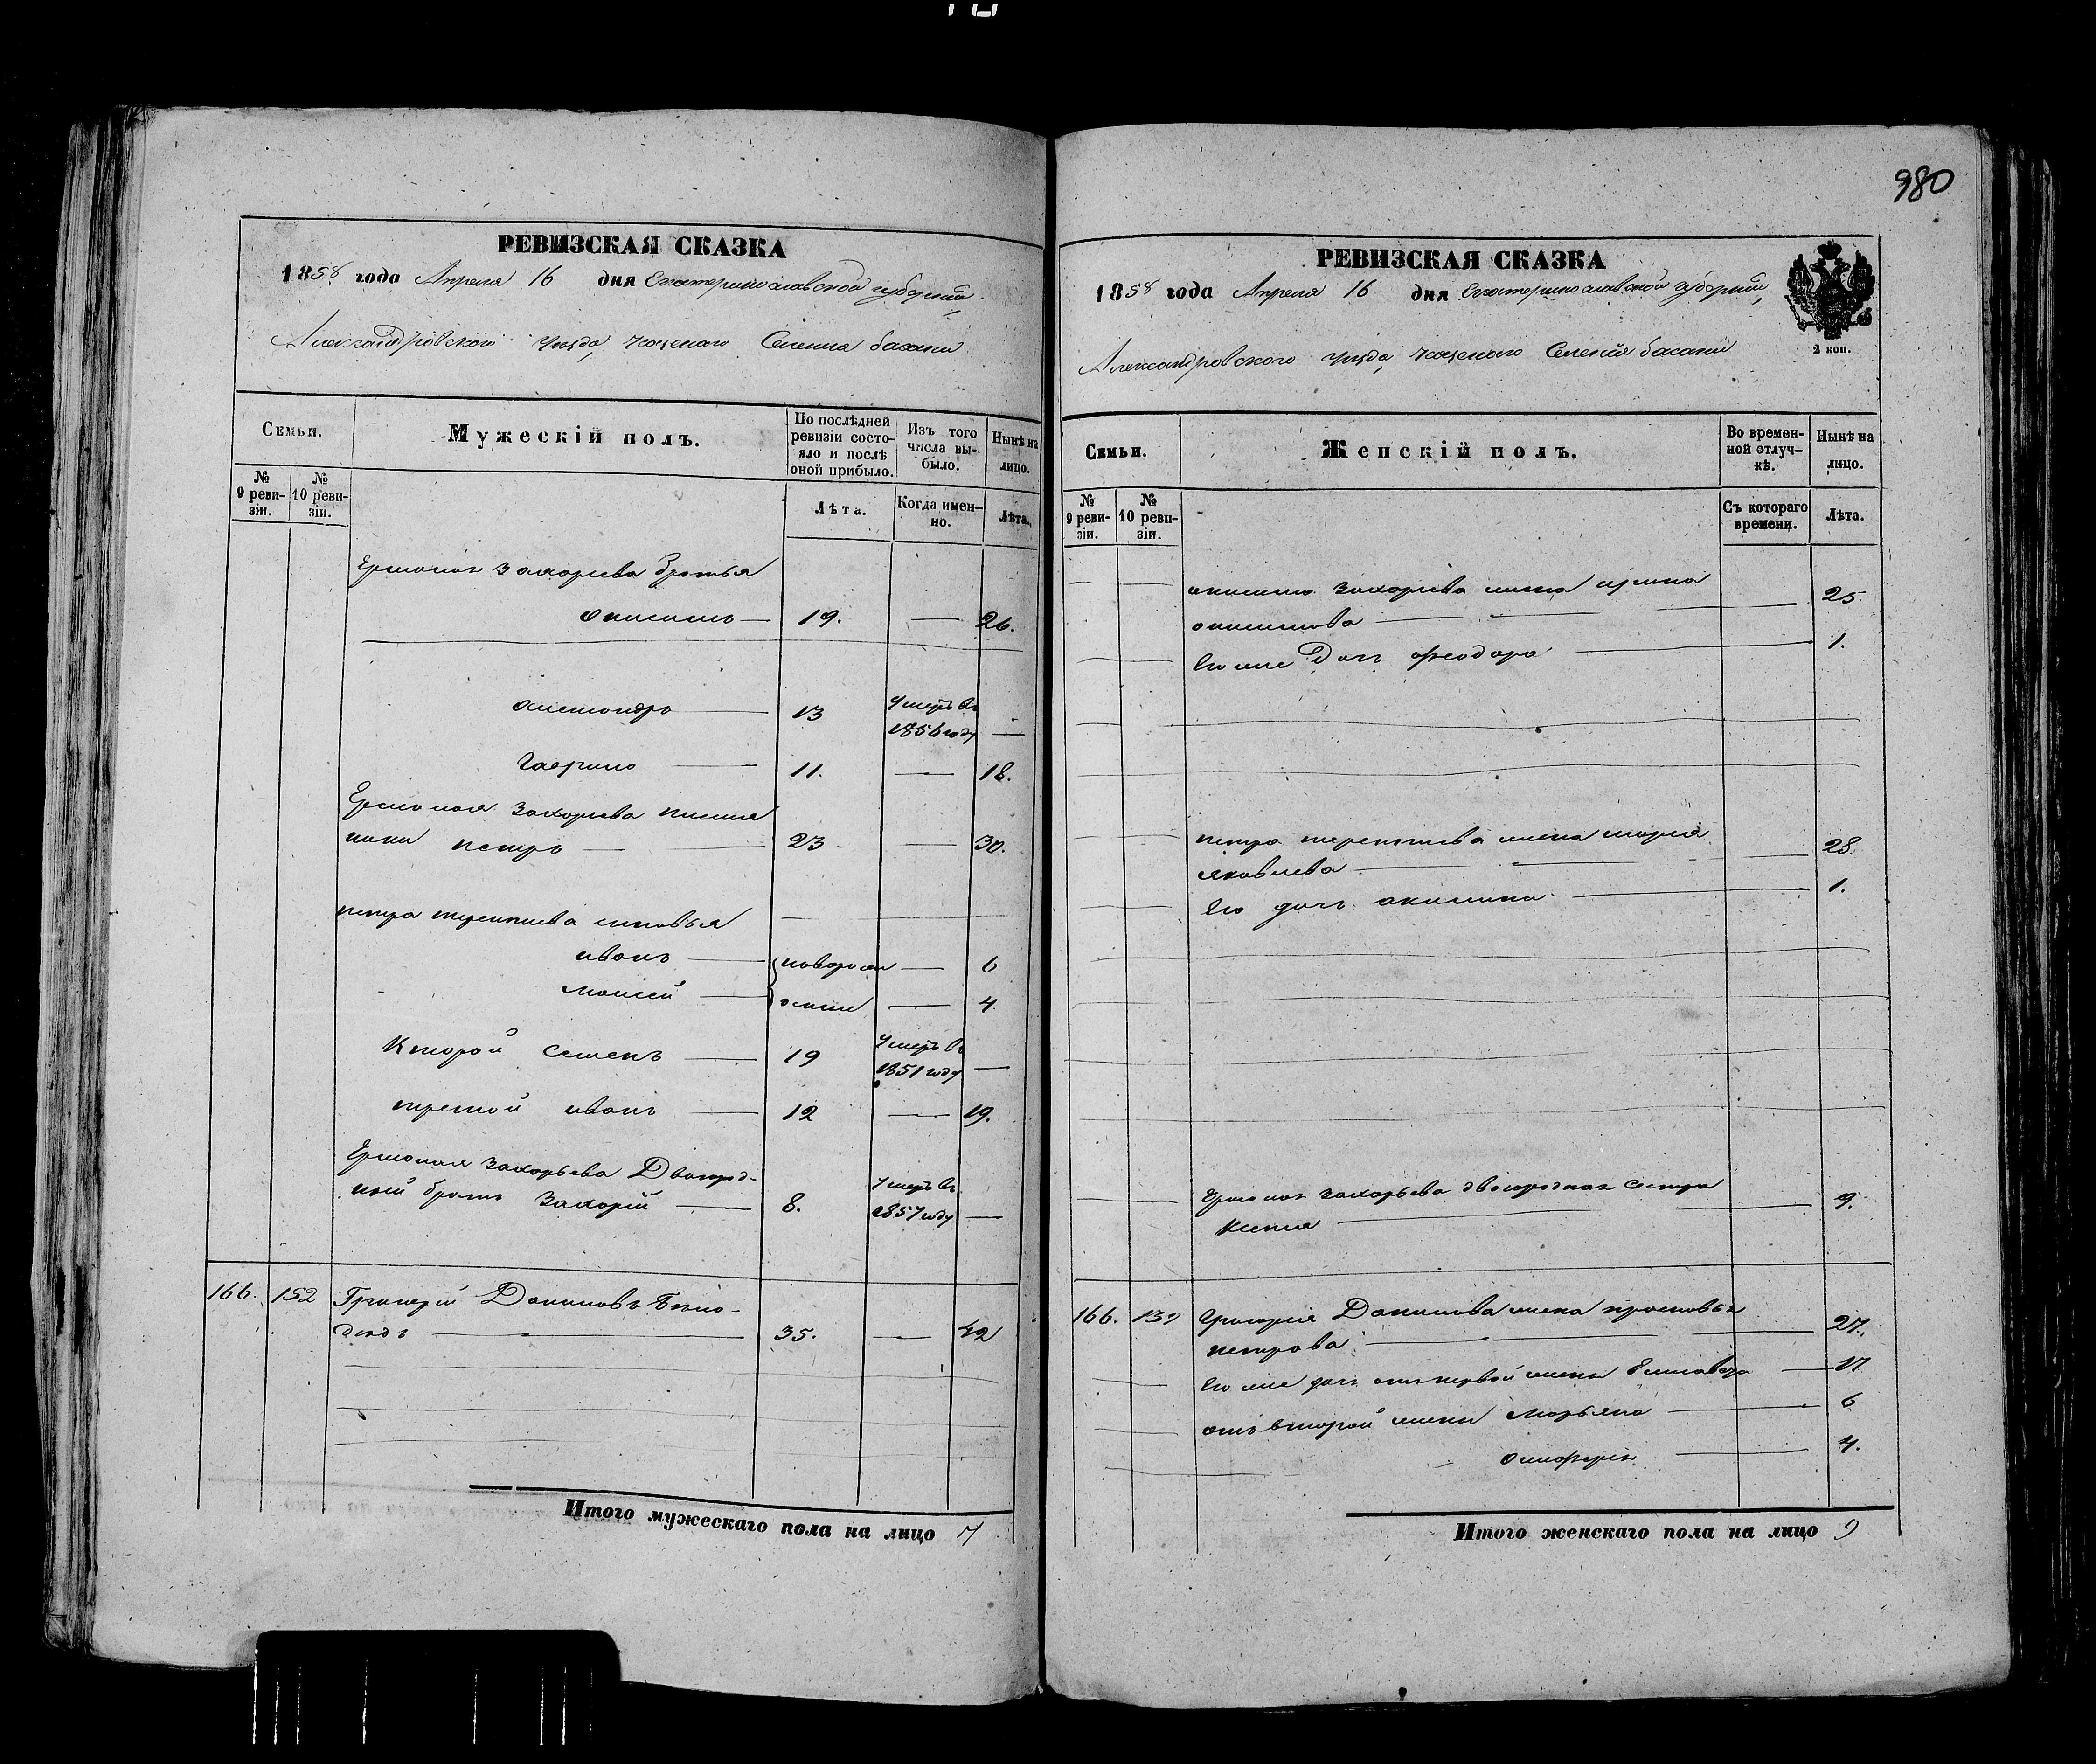 980
РЕВИЗСКАЯ СКАЗКА
1858 года Апреля 16 дня Екатеринославской губернии,
Александровского уезда, казенного Селения басани
Семьи.
Мужескій полъ.
По послѣдней ревизіи состояло и послѣ оной прибыло.
Изъ того числа выбыло.
Нынѣ на лицо.
№ 9 ревизіи.
№ 10 ревизіи.
Лѣта.
Когда именно.
Лѣта.
Ермолая Захарьева братья
19. — 26.
13 Умеръ въ 1856 году —
Гаврило — 11. — 18.
Ермолая Захарьева племя
ники петръ — 23 — 30.
петра терентиева сыновья
иванъ — новорож — 6
моисей — денные — 4
Второй Семенъ — 19 Умеръ въ 1851 году —
третой иванъ — 12 — 19.
Ермолая Захарьева Двоюрод-
ный братъ Захарій — 8. Умеръ въ 1857 году —
166. 152 Григорій Даниловъ
35. — 42
Итого мужескаго пола на лицо 7
РЕВИЗСКАЯ СКАЗКА
1858 года Апреля 16 дня Екатеринославской губернии,
Александровского уезда, казенного Селения басани
2 коп.
Семьи.
Женскій полъ.
Во временной отлучкѣ.
Нынѣ на лицо.
№ 9 ревизіи.
№ 10 ревизіи.
Съ котораго времени.
Лѣта.
Захарьева жена ирина
— 25
Его же Дочь феодора — 1.
петра терентиева жена мария
яковлева — 28.
Его дочь акилина — 1.
Ермолая Захарьева двоюродная Сестра
Ксения — 9.
166. 152 Григория Данилова жена
петрова — 27.
Его же дочь отъ первой жены Елисавета — 17
отъ второй жены Марьяна — 6
4.
Итого женскаго пола на лицо 9